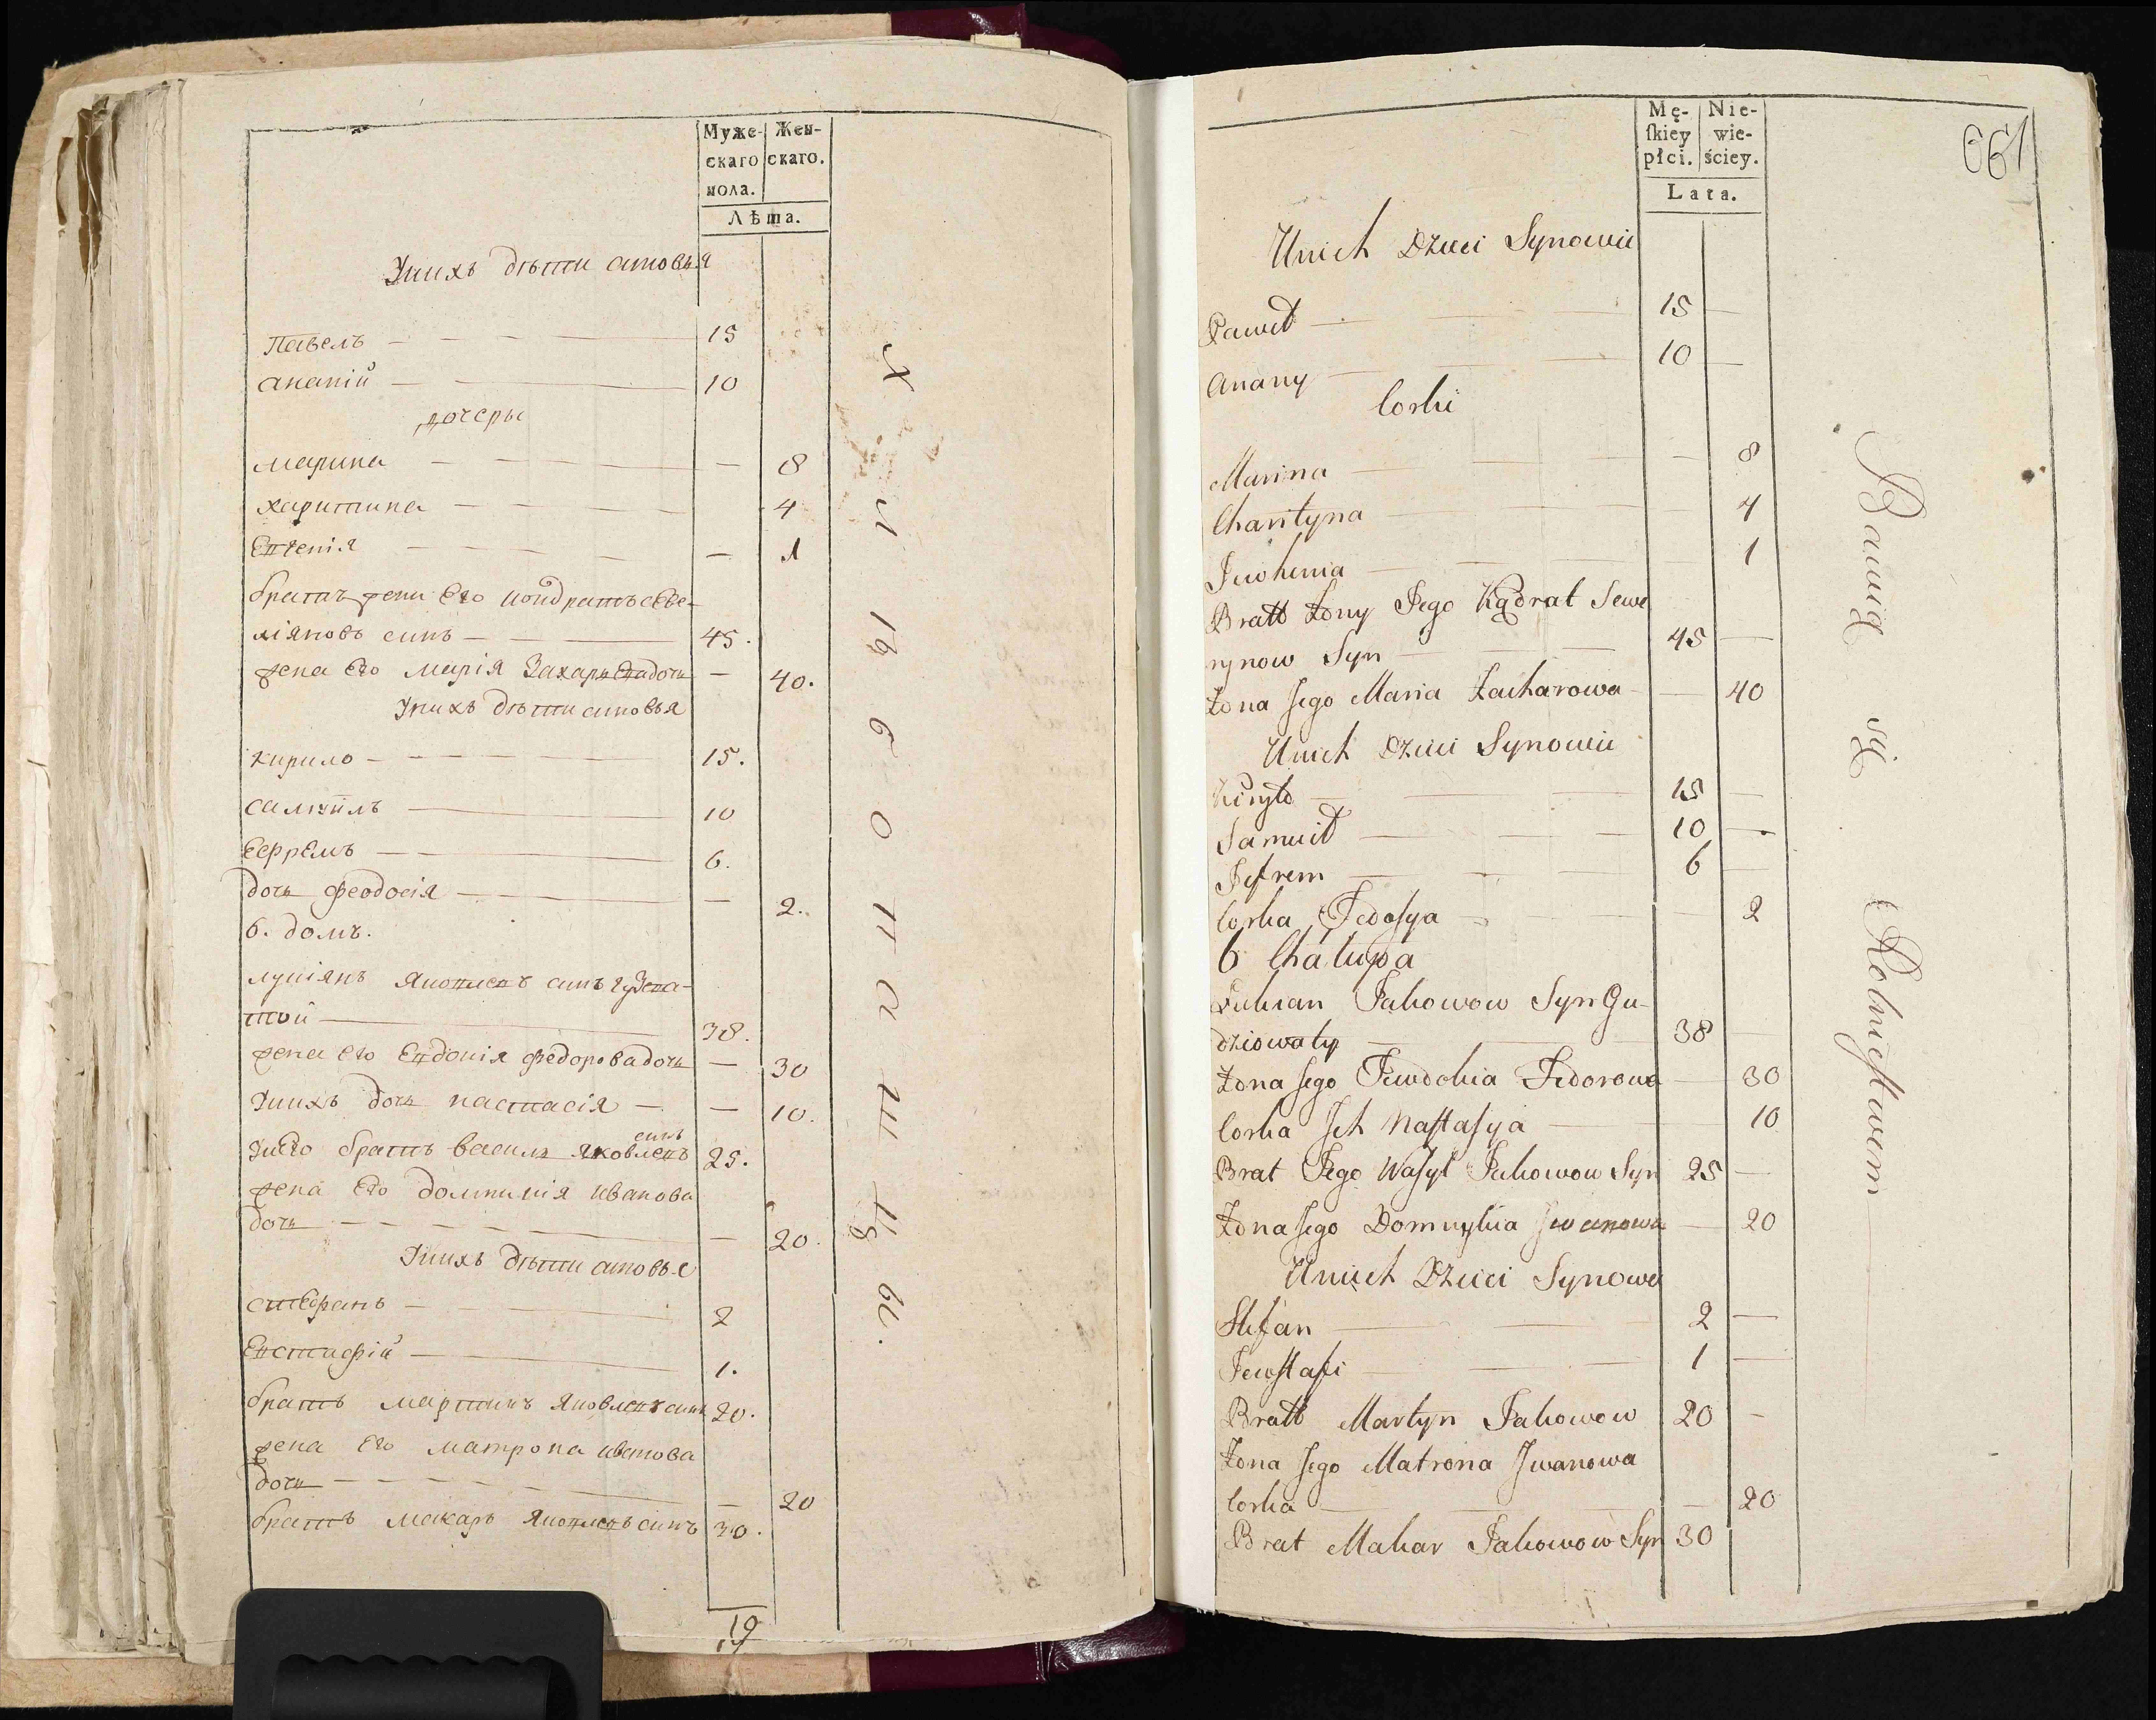 Муже-
скаго
пола.
Жен-
скаго.
Лѣта.
Унихъ дѣти синовья
Павелъ — 15
Ананій — 10
дочеры
Марина — — 8
Харитина — 4
Евгенія — — 1
братъ жени Его Кондратъ Севе-
ріяновъ синъ — 45.
жена Его Марія Захарьева дочь — 40.
Унихъ дѣти синовья
Кирило — 15.
Самуйлъ — 10
Ефремъ — 6.
дочь Феодосія — — 2.
6. домъ.
Лукіянъ Яковлевъ синъ Гудзева-
той — 38.
жена Его Евдокія Федорова дочь — 30
Унихъ дочь Настасія — — 10.
УнЕго братъ Василь Яковлевъ синъ 25.
жена Его Домникія Иванова
дочь — — 20.
Унихъ дѣти синовье
Стефанъ — 2
Евстафій — 1.
братъ Мартинъ Яковлевъ синъ 20.
жена Его Матрона Иванова
дочь — — 20
братъ Макаръ Яковлевъ синъ 30.
19
Хлѣбопашцы.
Mę-
skiey
płci.
Nie-
wie-
ściey.
Lata.
661
Unich Dzieci Synowie
Paweł — 15 —
Anany — 10 —
Corki
Marina — — 8
Charityna — 4
Jewhenia — 1
Bratt Żony Jego Kądrat Sewe
rynow Syn — 45 —
Żona Jego Maria Zacharowa — 40
Unich Dzieci Synowie
Kiryło — 15 —
Samuił — 10 —
Jefrem — 6 —
Corka Fedosya — 2
6 Chałupa
Łukian Jakowow Syn Gu-
dziowaty — 38 —
Żona Jego Jewdokia Fedorowa — 30
Corka Ich Nastasya — 10
Brat Jego Wasyl Jakowow Syn 25 —
Żona Jego Domnykia Iwanowa — 20
Unich Dzieci Synowe
Stefan — 2 —
Jewstafi — 1 —
Bratt Martyn Jakowow 20 —
Żona Jego Matrona Iwanowa
Corka — — 20
Brat Makar Jakowow Syn 30
Bawią się Rolnictwem